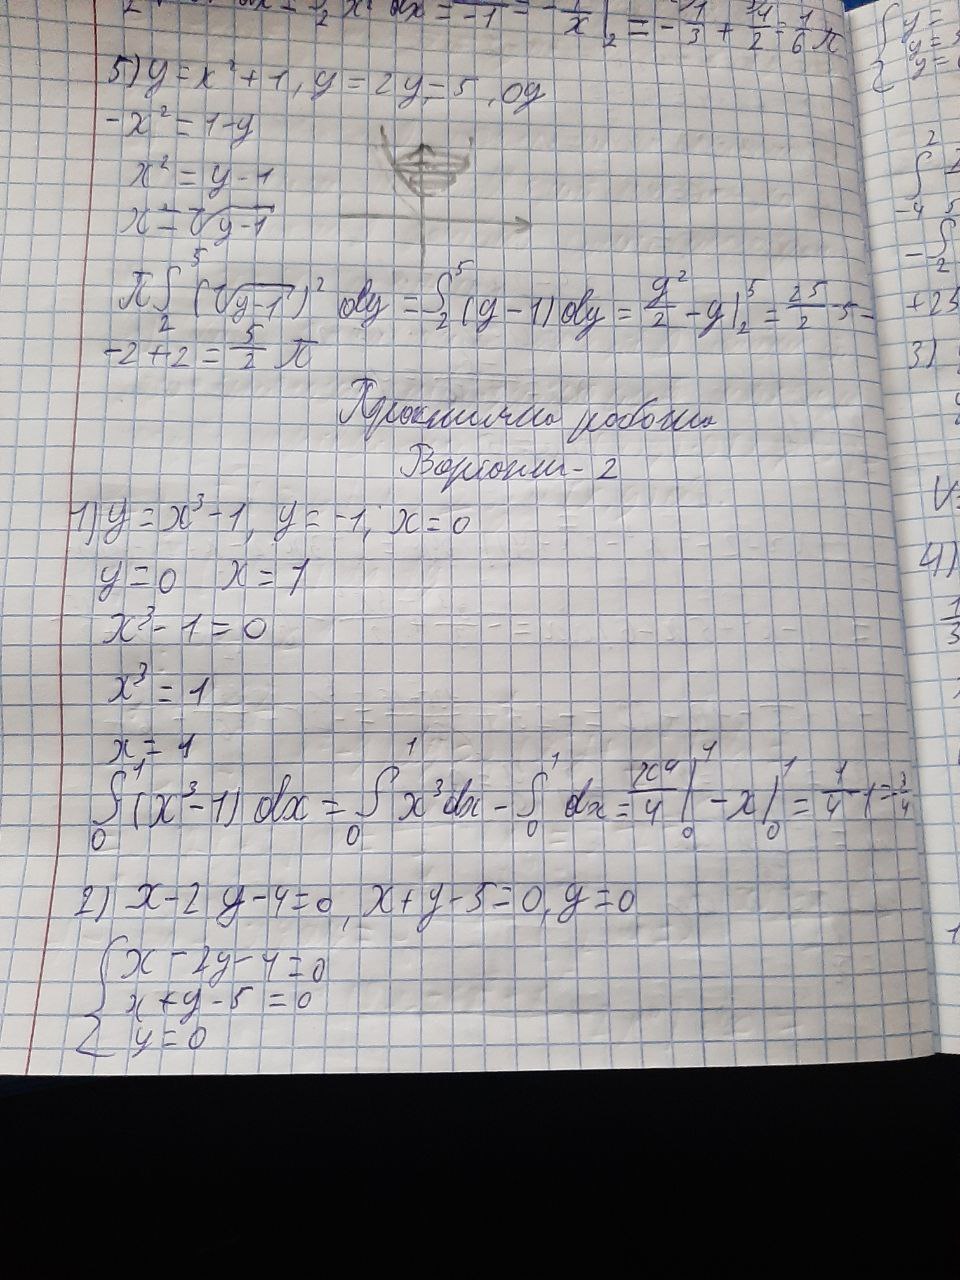 = -1/3 + 1/2 = 1/6 π
5) y = x² + 1, y = 2 y = 5, oy
-x² = 1-y
x² = y-1
x = √(y-1)
π∫₂⁵ (√(y-1))² dy = ∫₂⁵ (y-1) dy = y²/2 - y |₂⁵ = 25/2 - 5 -
-2+2 = 5/2 π
Практична робота
Варіант - 2
1) y = x³-1, y = -1, x = 0
y = 0 x = 1
x³-1 = 0
x³ = 1
x = 1
∫₀¹ (x³-1) dx = ∫₀¹ x³dx - ∫₀¹ dx = x⁴/4 |₀¹ - x |₀¹ = 1/4 - 1 = -3/4
2) x-2y-4=0, x+y-5=0, y=0
{ x-2y-4=0
x+y-5=0
y=0